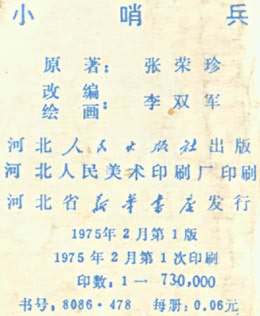 小哨兵
原著：张荣珍
改编
绘画：李双军
河北人民出版社出版
河北人民美术印刷厂印刷
河北省新华书店发行
1975年2月第1版
1975年2月第1次印刷
印数：1—730,000
书号：8086·478 每册：0.06元